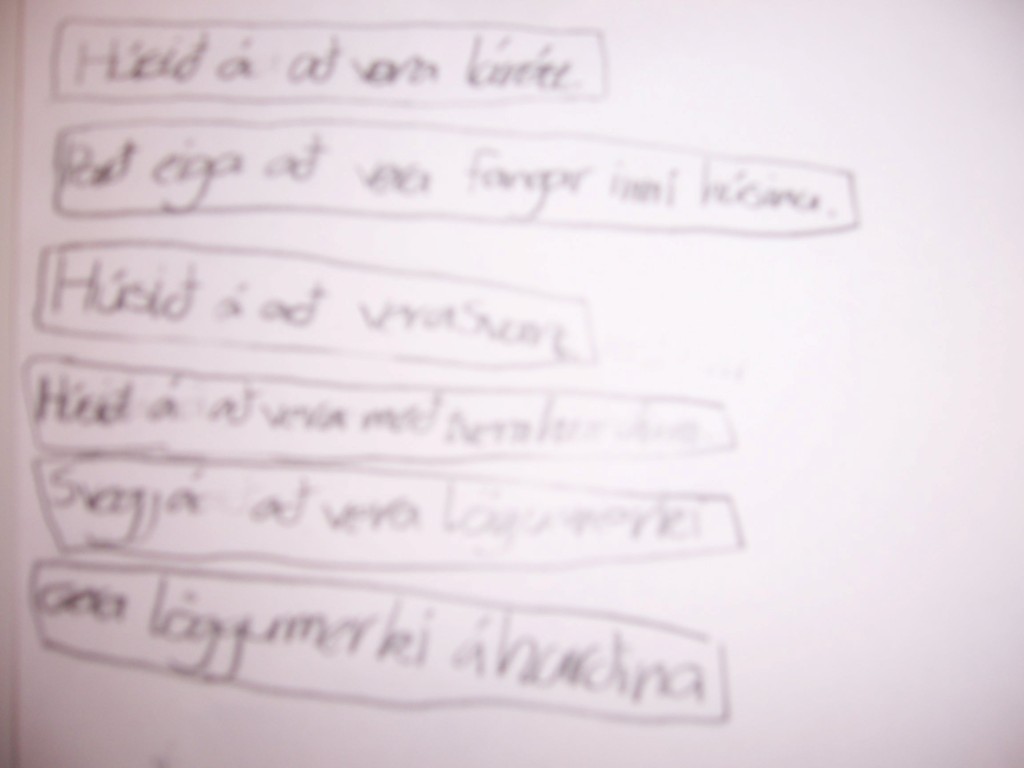 Húsið á að vera lárétt.
Það eiga að vera fangar inní húsinu.
Húsið á að vera svart
Húsið á að vera með
á að vera löggumerki
löggumerki á hurðina